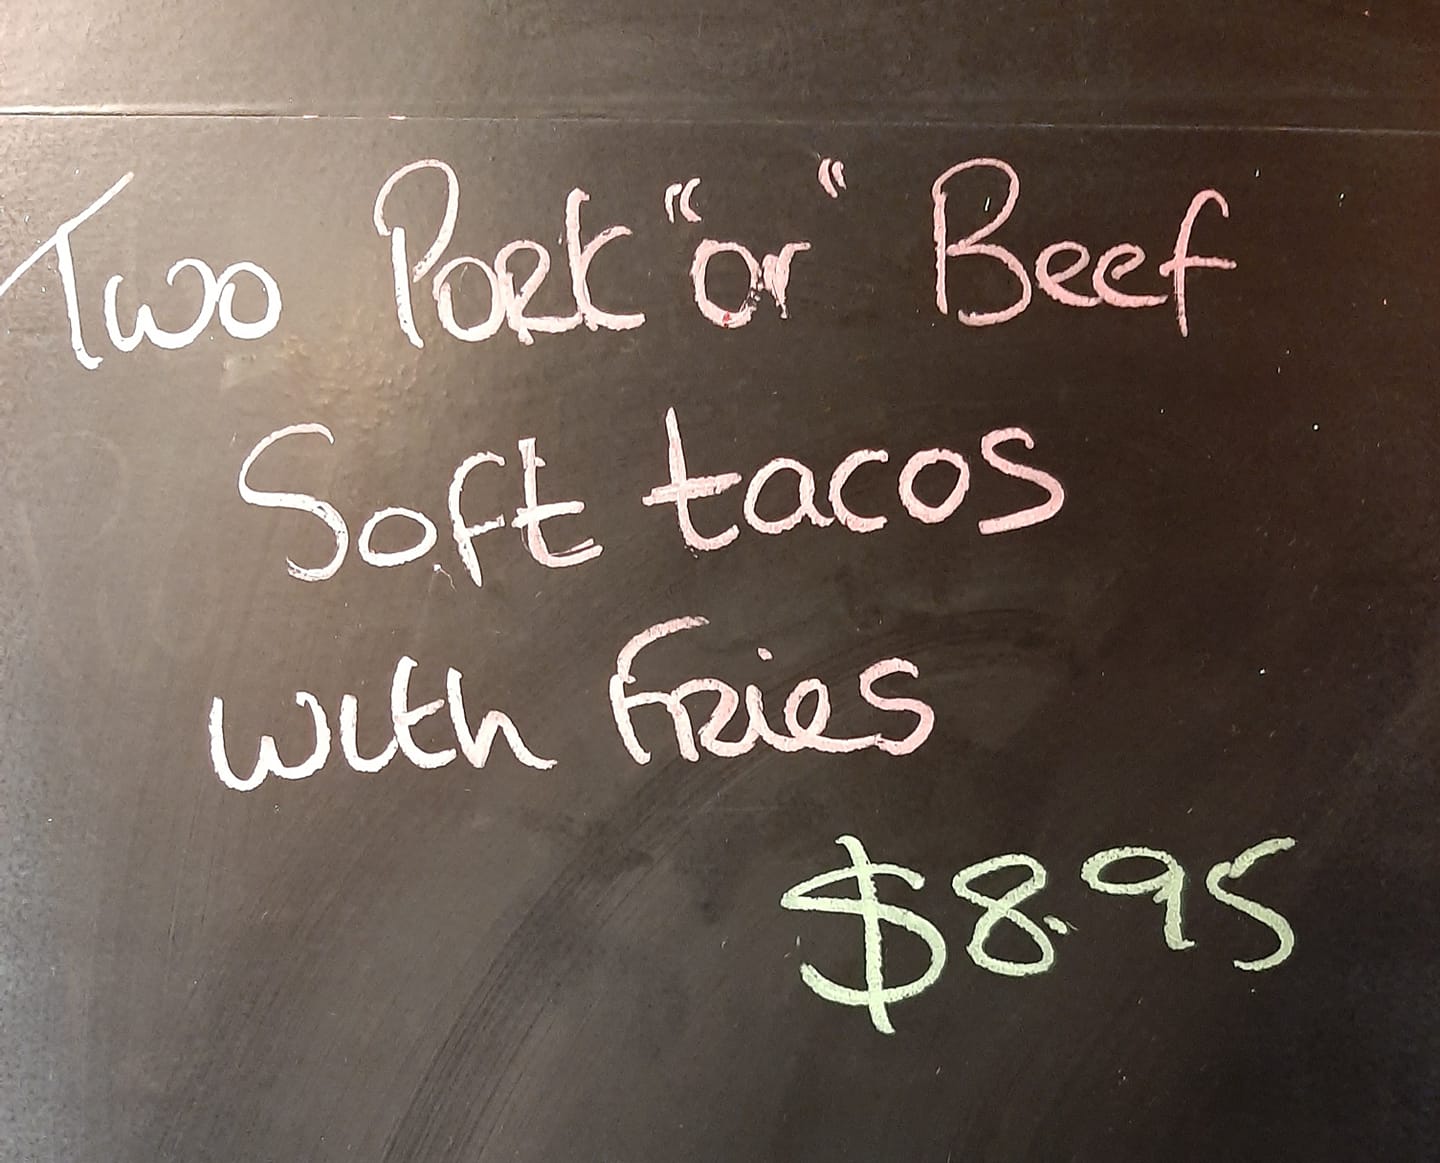 Two Pork "or" Beef
Soft tacos
with Fries
$8.95